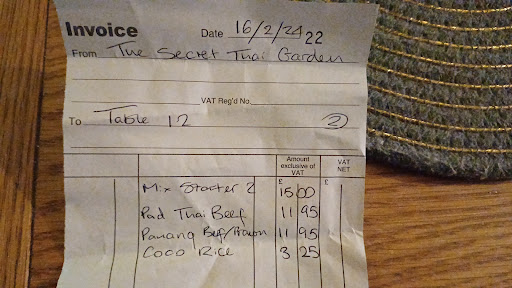 Invoice Date 16/2/2022
From The Secret Thai Garden
VAT Reg'd No.
To Table 12 2
Amount exclusive of VAT VAT NET
£ £
Mix Starter 2 15 00
Pad Thai Beef 11 95
Panang Beef/Prawn 11 95
Coco Rice 3 25